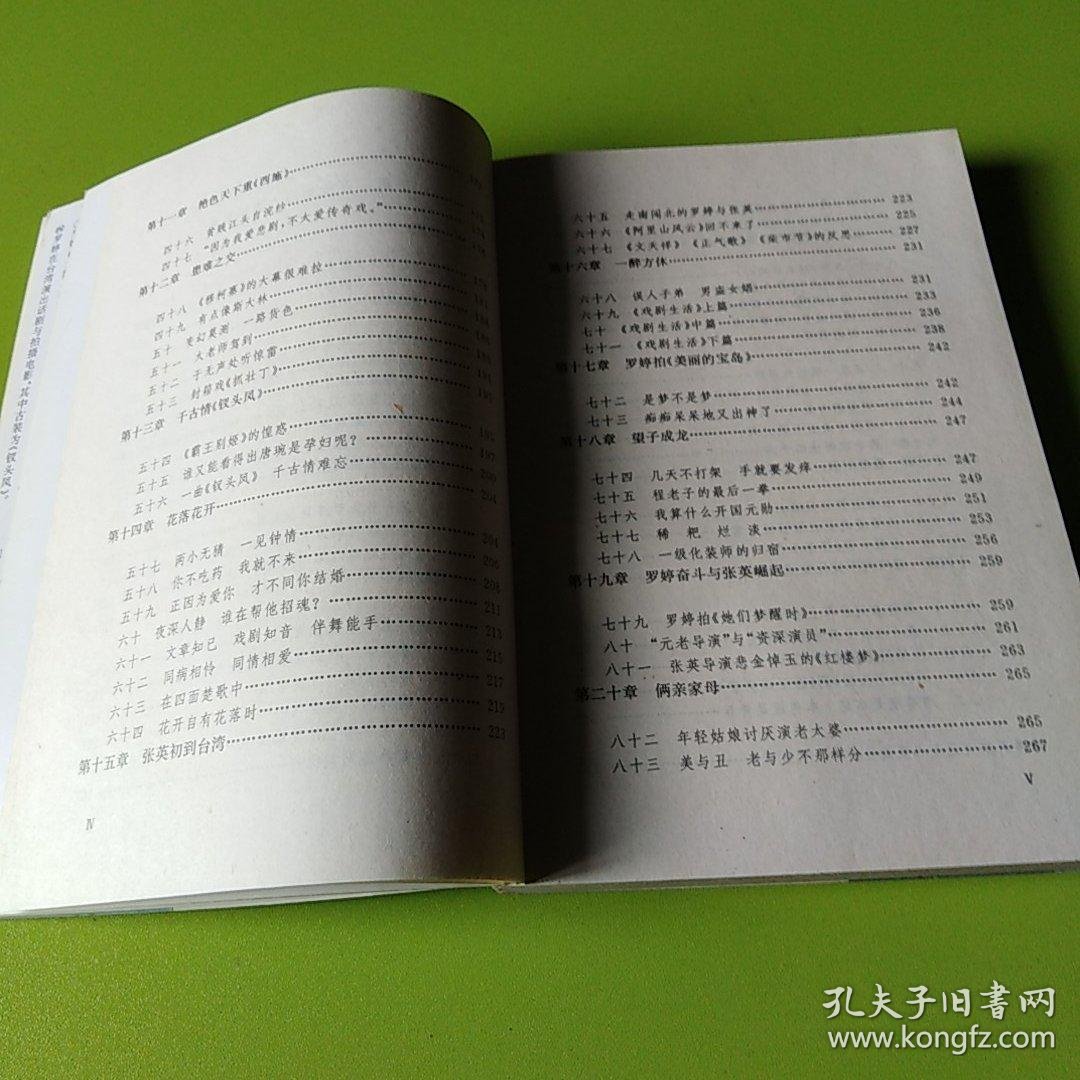 第十一章 艳色天下重《西施》
四十六 昔贱江头自浣纱
四十七 “因为我爱悲剧,不大爱传奇戏。”
第十二章 患难之交
四十八 《穆柯寨》的大幕很难拉
四十九 有点像斯大林
五十 变幻莫测 一路货色
五十一 大老师驾到
五十二 于无声处听惊雷
五十三 封箱戏《抓壮丁》
第十三章 千古情《钗头凤》
五十四 《霸王别姬》的惶惑
五十五 谁又能看得出唐琬是孕妇呢? 200
五十六 一曲《钗头凤》 千古情难忘 204
第十四章 花落花开
五十七 两小无猜 一见钟情 204
五十八 你不吃药 我就不来 206
五十九 正因为爱你 才不同你结婚 208
六十 夜深人静 谁在帮他招魂? 211
六十一 文章知已 戏剧知音 伴舞能手 213
六十二 同病相怜 同情相爱 215
六十三 在四面楚歌中 217
六十四 花开自有花落时 219
第十五章 张英初到台湾 223
Ⅳ
六十五 走南闯北的罗婷与张英 223
六十六 《阿里山风云》回不来了 225
六十七 《文天祥》《正气歌》《柴市节》的反思 227
第十六章 一醉方休 231
六十八 误人子弟 男盗女娼 231
六十九 《戏剧生活》上篇 233
七十 《戏剧生活》中篇 236
七十一 《戏剧生活》下篇 238
第十七章 罗婷拍《美丽的宝岛》 242
七十二 是梦不是梦 242
七十三 痴痴呆呆地又出神了 244
第十八章 望子成龙 247
七十四 几天不打架 手就要发痒 247
七十五 程老子的最后一拳 249
七十六 我算什么开国元勋 251
七十七 稀 粑 烂 淡 253
七十八 一级化装师的归宿 256
第十九章 罗婷奋斗与张英崛起 259
七十九 罗婷拍《她们梦醒时》 259
八十 “元老导演”与“资深演员” 261
八十一 张英导演悲金悼玉的《红楼梦》 263
第二十章 俩亲家母 265
八十二 年轻姑娘讨厌演老太婆 265
八十三 美与丑 老与少不那样分 267
Ⅴ
在台湾演出话剧与拍摄电影,其中古装为《钗头凤》。
孔夫子旧書网
www.kongfz.com